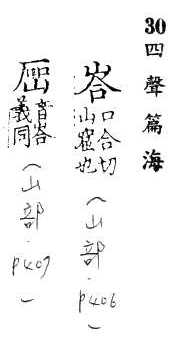 30 四聲篇海
峇 口合切山窟也（山部．p406）
音峇義同（山部．p407）